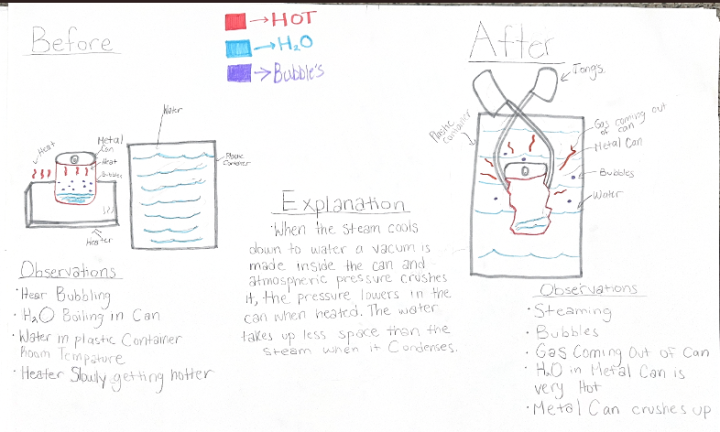 Before
→HOT
→H₂O
→Bubble's
After
Tongs
Water
Heat
Metal
Can
Heat
Plastic
Container
Heater
Plastic
Container
Gas coming out
of can
Metal Can
Bubbles
Water
Explanation
·When the steam cools
down to water a vacum is
made inside the can and
atmospheric pressure crushes
it, the pressure lowers in the
can when heated. The water
takes up less space than the
steam when it Condenses.
Observations
·Hear Bubbling
·H₂O Boiling in Can
·Water in plastic Container
Room Tempature
·Heater Slowly getting hotter
Observations
·Steaming
·Bubbles
·Gas Coming Out of Can
·H₂O in Metal Can is
very Hot
·Metal Can crushes up